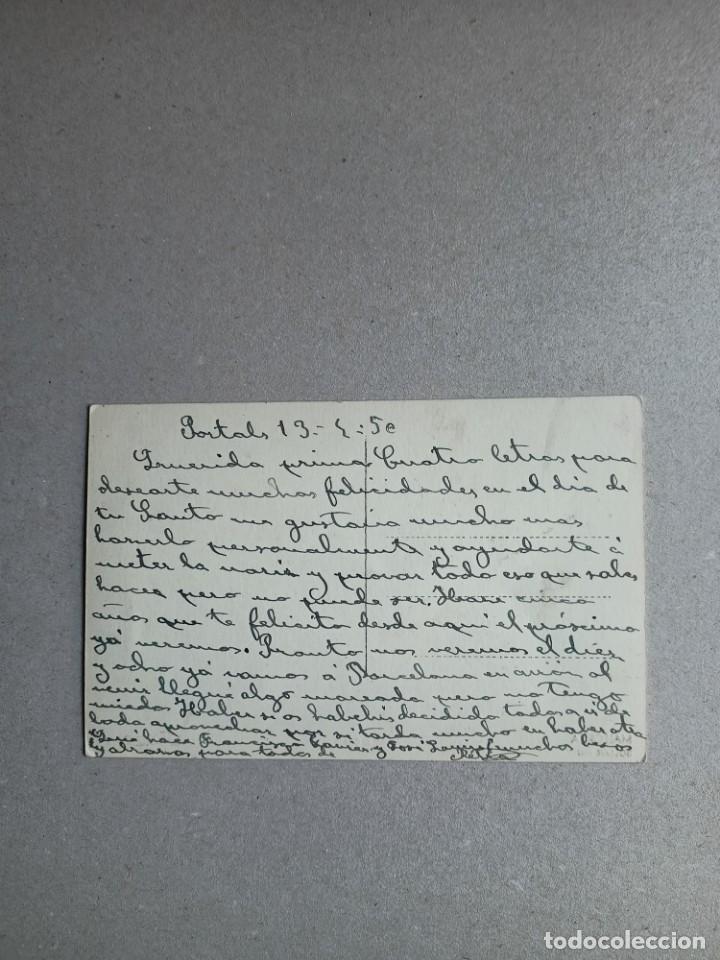 Portals 13 - 5e
Querida prima Cuatro letras para
desearte muchas felicidades en el dia de
tu Santo me gustaria mucho mas
hacerlo personalmente y ayudarte á
meter la naris y provar todo eso que sabes
hacer pero no puede ser. Hace cinco
años que te felicito desde aquí el próximo
yá veremos. Pronto nos veremos el dies
y ocho yá vamos á Barcelona en avión al
venir llegué algo mareada pero no tengo
miedo. Haber si os habehis decidido todos a ir de
boda aprovechar por si tarda mucho en haber otra
Qué hace Francisco Xavier y José muchos besos
y abrazos para todos de
todocoleccion
todocoleccion.net